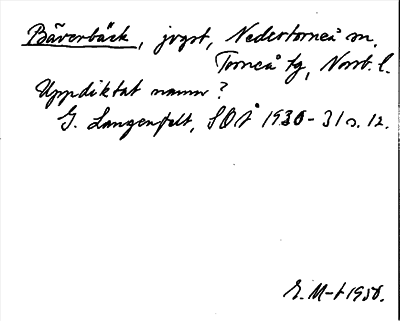 Bäverbäck, jvgst, Nedertorneå sn,
Torneå tg, Norrb. l.
Uppdiktat namn?
G. Langenfelt, SOÅ 1930-31 s. 12.
G. M-t 1950.